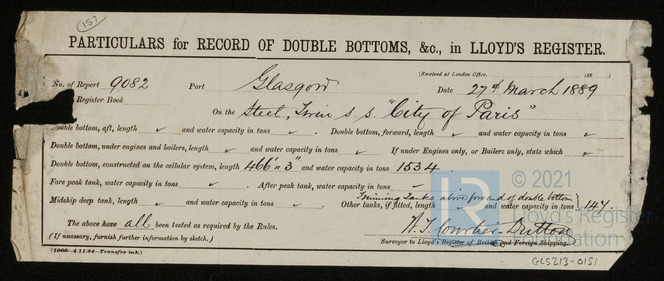 157
PARTICULARS for RECORD OF DOUBLE BOTTOMS, &c., in LLOYD'S REGISTER.
(Received at London Office, 188 )
No. of Report 9082 Port Glasgow Date 27th March 1889
Register Book On the Steel, Twin S.S. "City of Paris"
Double bottom, aft, length ✓ and water capacity in tons ✓ . Double bottom, forward, length ✓ and water capacity in tons ✓
Double bottom, under engines and boilers, length ✓ and water capacity in tons ✓ . If under Engines only, or Boilers only, state which ✓
Double bottom, constructed on the cellular system, length 466' 3" and water capacity in tons 1534.
Fore peak tank, water capacity in tons ✓ . After peak tank, water capacity in tons —
Trimming Tanks above fore end of double bottom
Midship deep tank, length ✓ and water capacity in tons ✓ . Other tanks, if fitted, length ✓ and water capacity in tons 147.
The above have all been tested as required by the Rules.
(If necessary, furnish further information by sketch.)
Surveyor to Lloyd's Register of British and Foreign Shipping.
(1000-4/11/84-Transfer ink.)
GLS213-0151
© 2021
Lloyd's Register
Foundation